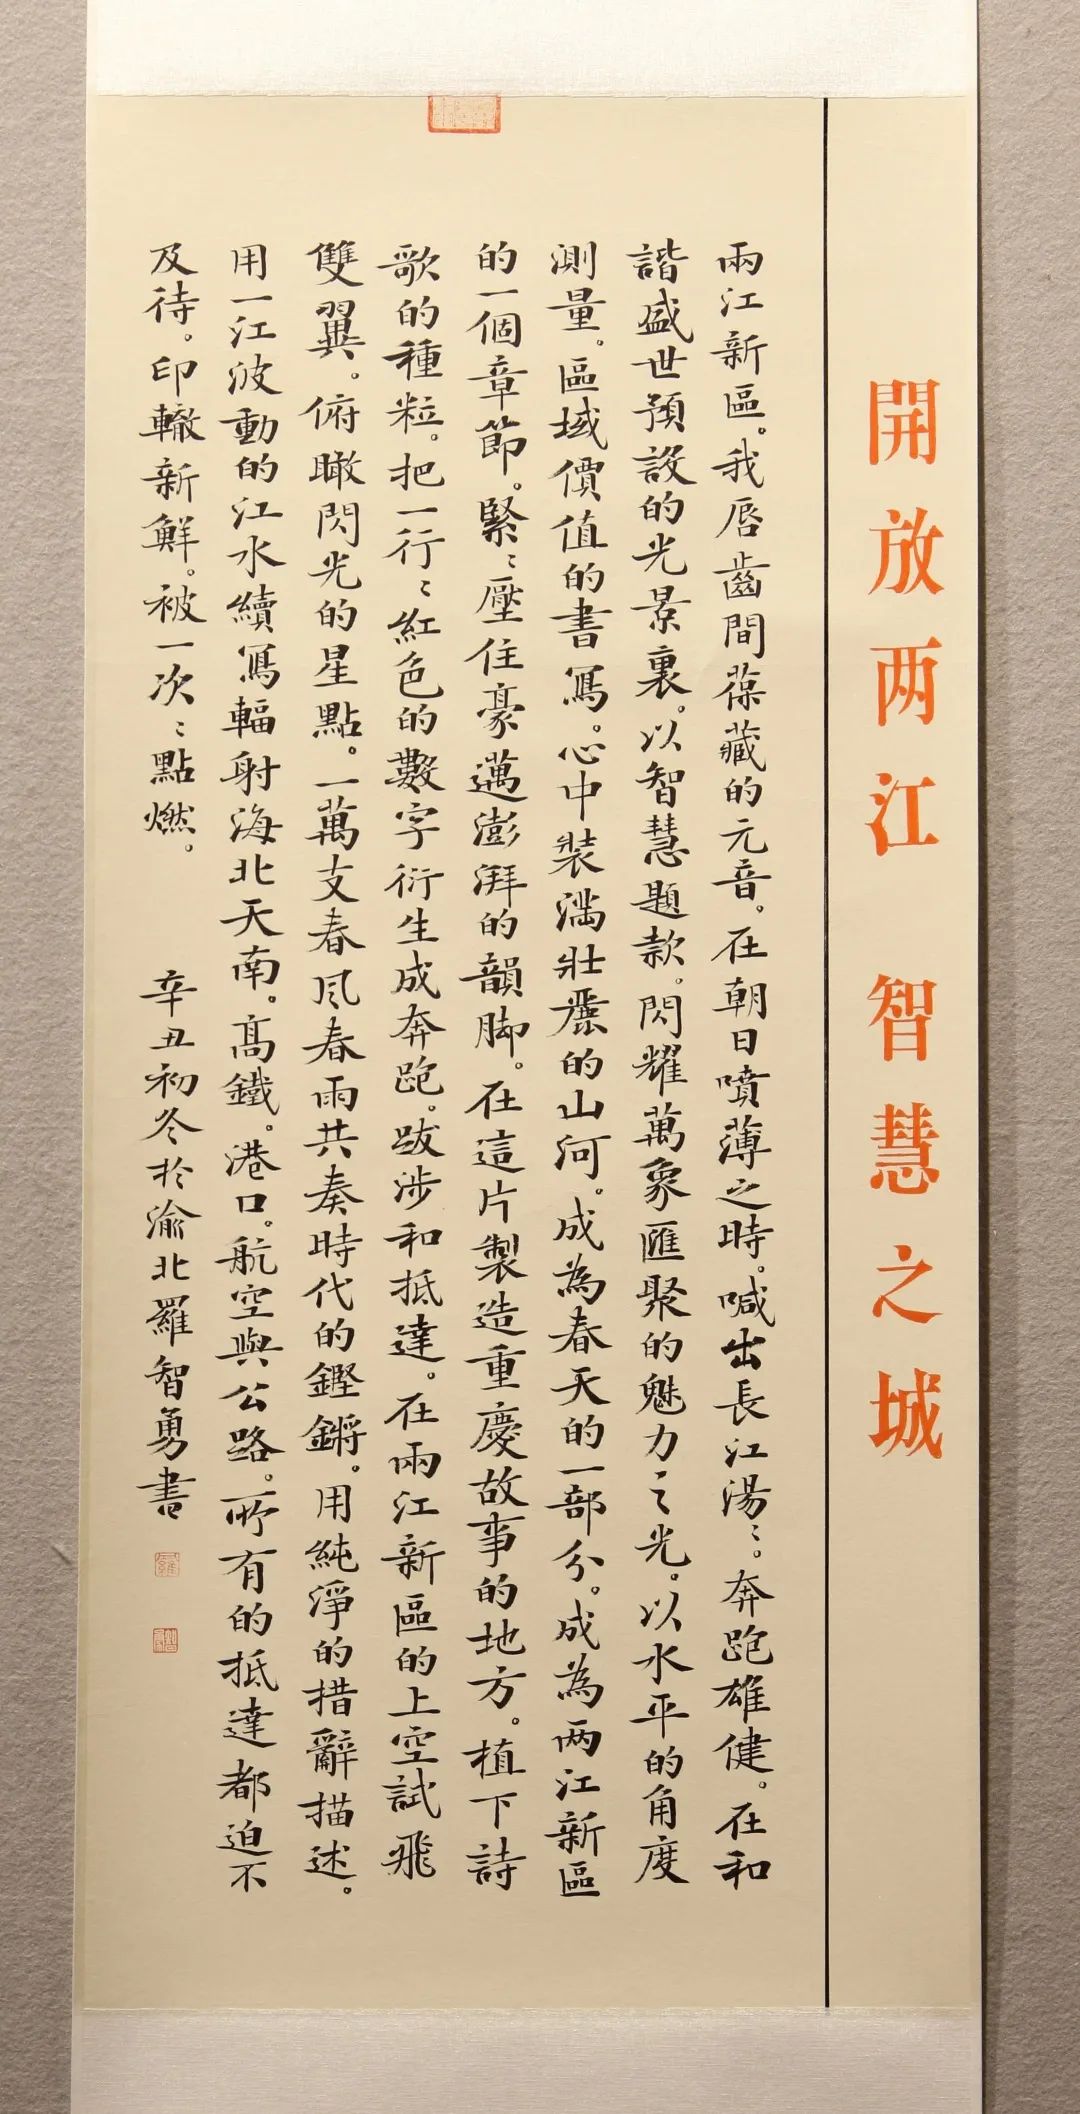 開放两江 智慧之城
兩江新區。我唇齒間葆藏的元音。在朝日噴薄之時。喊出長江湯〻。奔跑雄健。在和
諧盛世預設的光景裏。以智慧題款。閃耀萬象匯聚的魅力之光。以水平的角度
測量。區域價值的書寫。心中裝滿壯麗的山河。成為春天的一部分。成為两江新區
的一個章節。緊〻壓住豪邁澎湃的韻脚。在這片製造重慶故事的地方。植下詩
歌的種粒。把一行〻紅色的數字衍生成奔跑。跋涉和抵達。在兩江新區的上空試飛
雙翼。俯瞰閃光的星點。一萬支春風春雨共奏時代的鏗鏘。用純淨的措辭描述。
用一江波動的江水續寫輻射海北天南。高鐵。港口。航空與公路。所有的抵達都迫不
及待。印轍新鮮。被一次〻點燃。 辛丑初冬於渝北羅智勇書